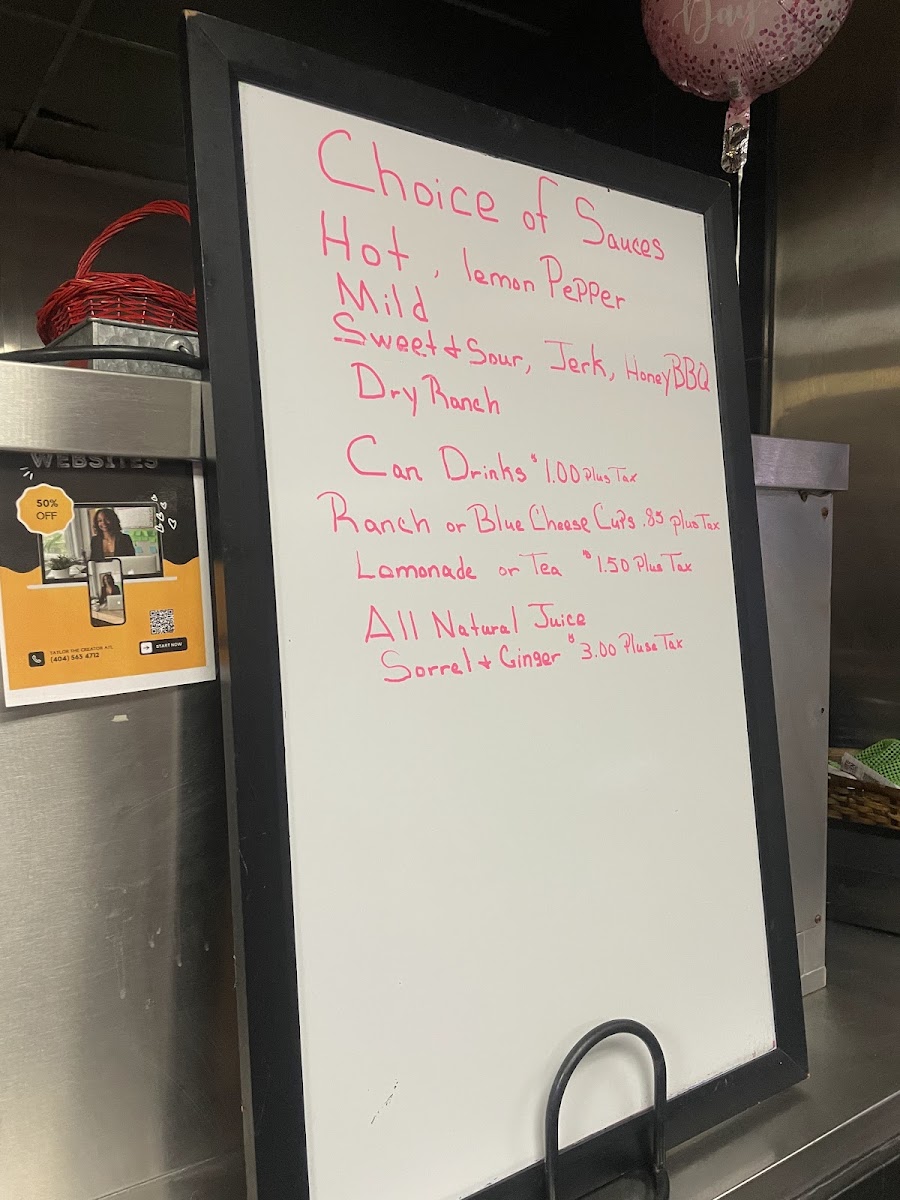 Day
Choice of Sauces
Hot, lemon Pepper
Mild
Sweet & Sour, Jerk, Honey BBQ
Dry Ranch
Can Drinks $1.00 plus Tax
Ranch or Blue Cheese Cups .85 plus Tax
Lemonade or Tea $1.50 Plus Tax
All Natural Juice
Sorrel & Ginger $3.00 Pluse Tax
WEBSITES
50%
OFF
TAYLOR THE CREATOR ATL
(404) 563 4712
START NOW